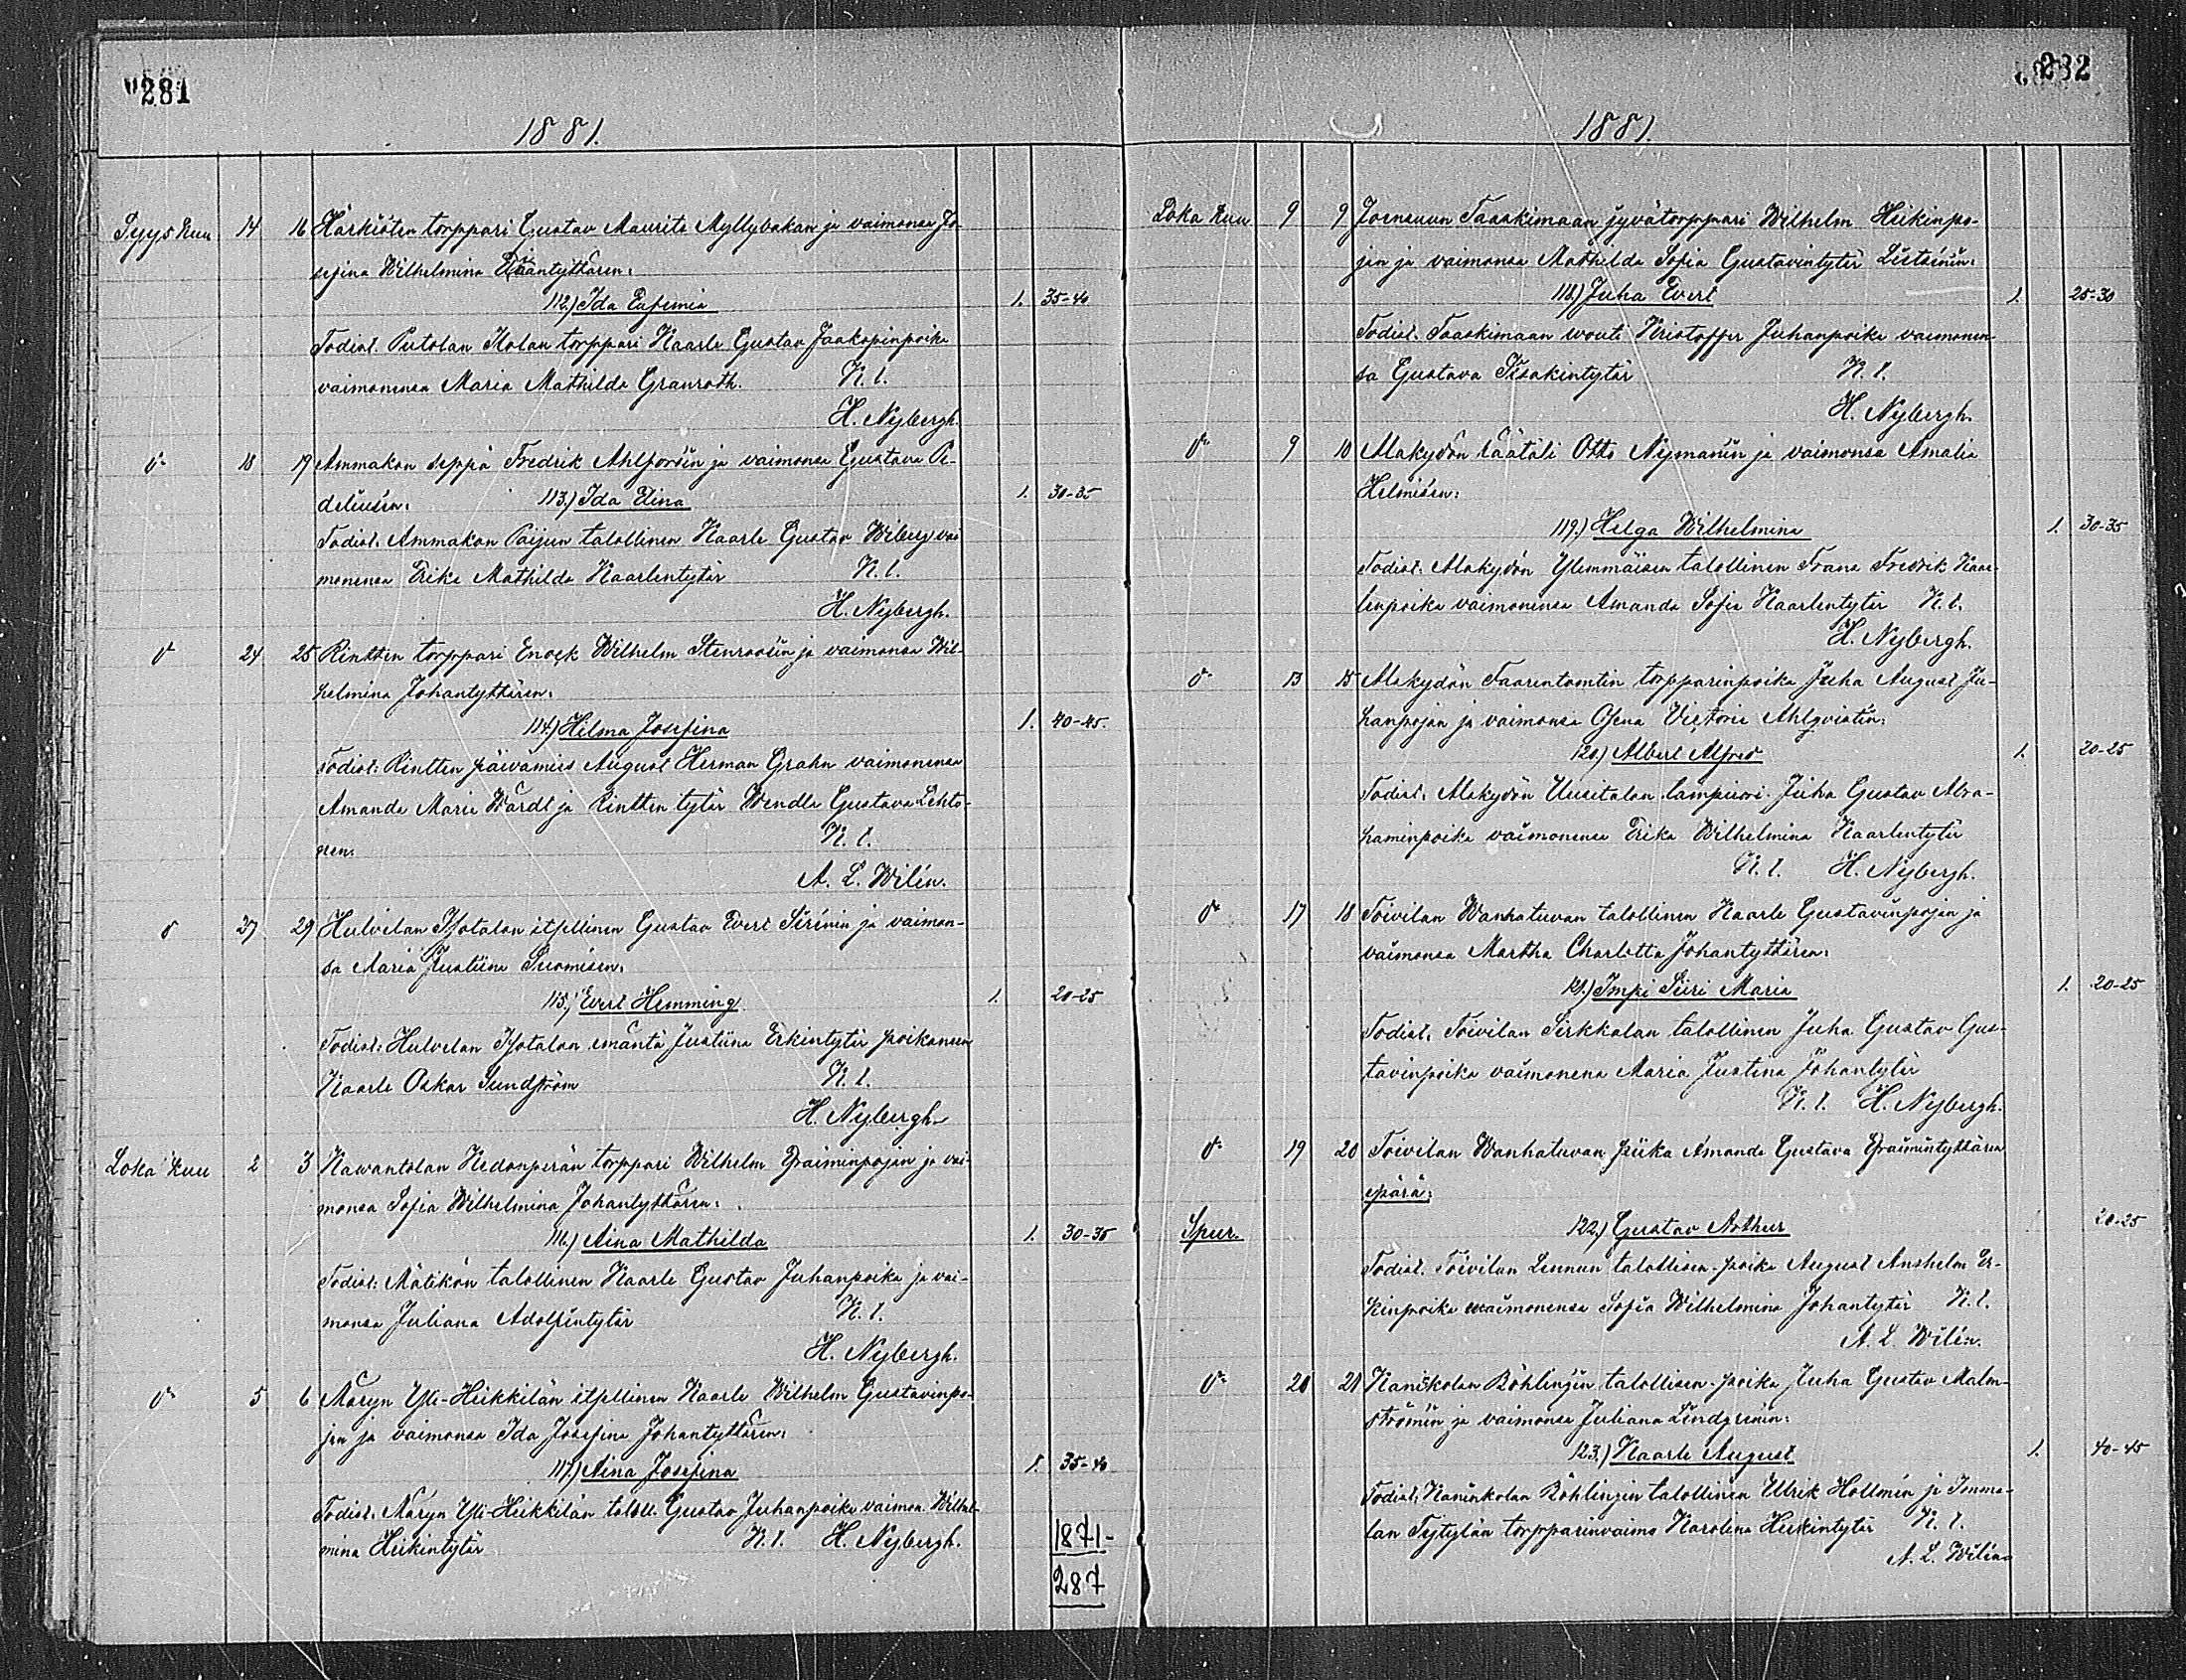 281
1881.
Syyskuu 14 16 Härkiöten torppari Gustav Maurits Myllybakan ja vaimonsa Jo-
sefina Wilhelmina
112.) Ida Eufemia 1. 35-40
Todist. Putolan Ikolan torppari Kaarle Gustav Jaakopinpoika
vaimonensa Maria Mathilda Granroth. K. l.
H. Nybergh.
18 19 Ammakon seppä Fredrik Ahlforsin ja vaimonsa Gustava
deliusén: 113.) Ida Elina 1. 30-35
Todist. Ammakon Paijun talollinen Kaarle Gustav Wiberg vai
monensa Erika Mathilda Kaarlentytär K. l.
H. Nybergh.
24 25 Rintten torppari Enock Wilhelm Stenroosin ja vaimonsa Wil-
helmina Johantyttären:
114.) Hilma Josefina 1. 40-45.
Todist: Rintten päivämies August Herman Grahn vaimonensa
Amanda Maria Wårdt ja Rintten tytär Wendla Gustava Lehto-
nen. K. l.
A. L. Wilén.
27 29 Hulvilan Isotalon itsellinen Gustav Evert Sirénin ja vaimon-
sa Maria Justiina Suomisen.
115.) Evert Hemming 1. 20-25
Todist: Hulvelan Isotalon emäntä Justiina Erkintytär poikansen
Kaarle Oskar Sundström K. l.
H. Nybergh.
Loka kuu 2 3 Kawantolan Kedonperän torppari Wilhelm Efraiminpojan ja vai-
monsa Sofia Wilhelmina Johantyttären:
116.) Aina Mathilda 1. 30-35
Todist: Mätikön talollinen Kaarle Gustav Juhanpoika ja vai-
monsa Juliana Adolfintytär K. l.
H. Nybergh.
5 6 Naryn Yli-Heikkilän itsellinen Kaarle Wilhelm Gustavinpo-
jan ja vaimonsa Ida Josefina Johantyttären:
117.) Aina Josefina 1. 35-40
Todist. Naryn Yli-Heikkilän taloll. Gustav Juhanpoika vaimon. Wilhel-
mina Heikintytär K. l. H. Nybergh.
1871-
287
282
1881.
Loka kuu 9 9 Joensuun Saaskimaan jyvätorppari Wilhelm Heikinpo-
jan ja vaimonsa Mathilda Sofia Gustavintytär
118.) Juha Evert 1. 25-30
Todist. Saaskimaan wouti Kristoffer Juhanpoika vaimonen-
sa Gustava Iisakintytär K. l.
H. Nybergh.
9 10 Alakydön räätäli Otto Nymanin ja vaimonsa Amalia
Helmisen:
119.) Helga Wilhelmina 1. 30-35
Todist. Alakydön Ylemmäisen talollinen Frans Fredrik Kaar-
lenpoika vaimonensa Amanda Sofia Kaarlentytär K. l.
H. Nybergh.
13 15 Alakydön Saarentomtin torpparinpoika Juha August Ju-
hanpojan ja vaimonsa Victoria Ahlqvistin:
120.) Albert Alfred 1. 20-25
Todist. Alakydön Uusitalon lampuori Juha Gustav Abra-
haminpoika vaimonensa Erika Wilhelmina Kaarlentytär
K. l. H. Nybergh.
17 18 Toivilan Wanhatuvan talollinen Kaarle Gustavinpojan ja
vaimonsa Martha Charlotta Johantyttären:
121.) Impi Siiri Maria 1. 20-25
Todist. Toivilan Sirkkalan talollinen Juha Gustav Gus-
tavinpoika vaimonena Maria Justina Johantytär
K. l. H. Nybergh.
19 20 Toivilan Wanhatuvan piika Amanda Gustava Efraimintyttären
epärä:
Spur. 122.) Gustav Arthur 20-25
Todist. Toivilan Lennun talollisen poika August Anshelm Er-
kinpoika vaimonensa Sofia Wilhelmina Johantytär K. l.
A. L. Wilén.
20 21 Kanikolan Böhlingin talollisen poika Juha Gustav Malm-
strömin ja vaimonsa Juliana Lindgrenin:
123.) Kaarle August 1. 40-45
Todist: Kaninkolan Böhlingin talollinen Ulrik Hollmén ja Imma-
lan Tytylän torpparinvaimo Karolina Heikintytär K. l.
A. L. Wilén